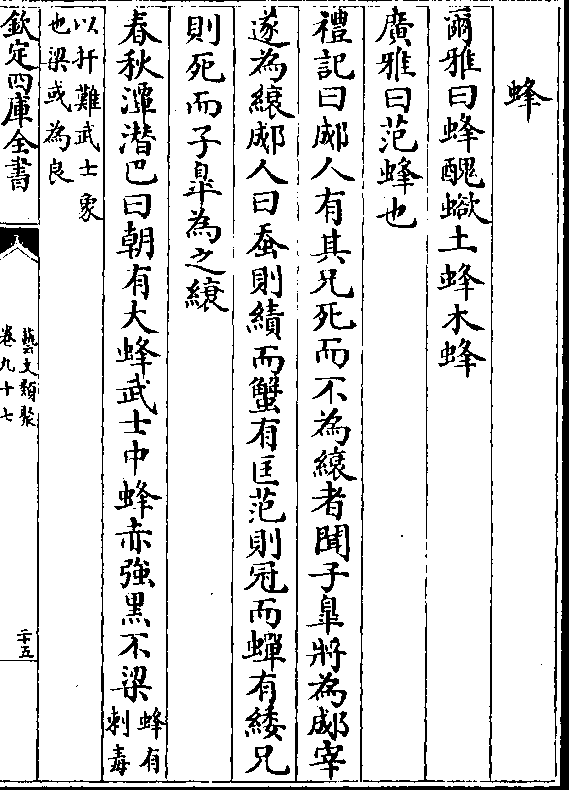 蜂
爾雅曰蜂醜螸土蜂木蜂
廣雅曰范蜂也
禮記曰郕人有其兄死而不為縗者聞子臯將為郕宰
遂為縗郕人曰蚕則績而蟹有匡范則冠而蟬有緌兄
則死而子臯為之縗
春秋潬潛巴曰朝有大蜂武士中蜂赤強黑不梁
蜂有
刺毒
以扞難武士象
也梁或為良
欽定四庫全書
藝文類聚
卷九十七
二十五